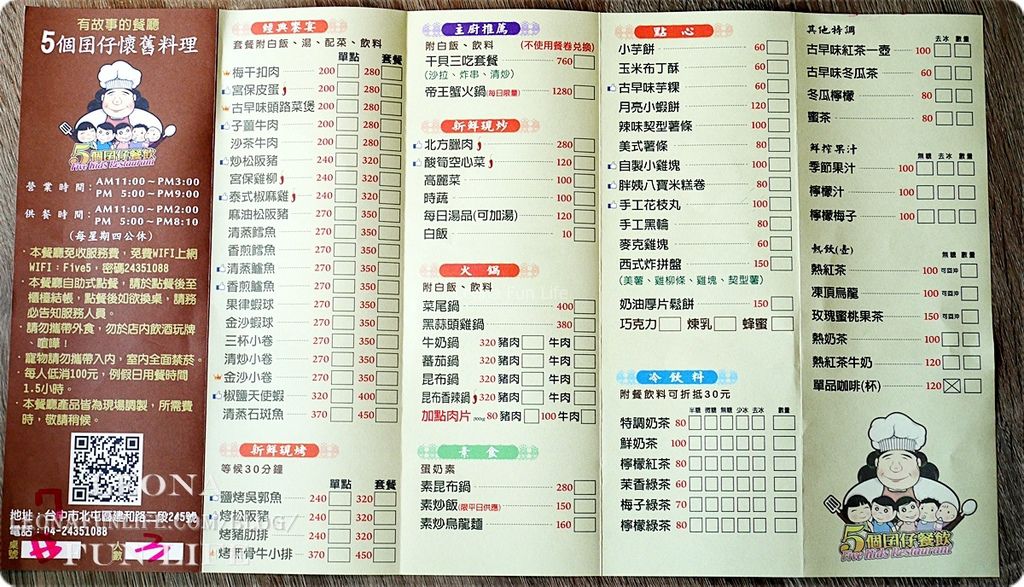 有故事的餐廳
5個囝仔懷舊料理
5個囝仔餐飲
Five Kids Restaurant
營業時間：AM11:00～PM3:00
PM 5:00～PM9:00
供餐時間：AM11:00～PM2:00
PM 5:00～PM8:10
(每星期四公休)
·本餐廳免收服務費，免費WIFI上網
WIFI：Five5，密碼24351088
·本餐廳自助式點餐，請於點餐後至
櫃檯結帳，點餐後如欲換桌，請務
必告知服務人員。
·請勿攜帶外食，勿於店內飲酒玩牌
、喧嘩！
·寵物請勿攜帶入內，室內全面禁菸。
·每人低消100元，例假日用餐時間
1.5小時。
·本餐廳產品皆為現場調製，所需費
時，敬請稍候。
地址：台中市北屯區建和路二段245號
電話：04-24351088
桌號
人數 3
經典饗宴
套餐附白飯、湯、配菜、飲料
單點 套餐
梅干扣肉 200 280
宮保皮蛋 200 280
古早味頭路菜煲 200 280
子薑牛肉 200 280
沙茶牛肉 200 280
炒松阪豬 240 320
宮保雞柳 240 320
泰式椒麻雞 240 320
麻油松阪豬 270 350
清蒸鱈魚 270 350
香煎鱈魚 270 350
清蒸鱸魚 270 350
香煎鱸魚 270 350
果律蝦球 270 350
金沙蝦球 270 350
三杯小卷 270 350
清炒小卷 270 350
金沙小卷 270 350
椒鹽天使蝦 320 400
清蒸石斑魚 370 450
新鮮現烤
等候30分鐘
單點 套餐
鹽烤吳郭魚 240 320
烤松阪豬 240 320
烤豬肋排 240 320
骨牛小排 370 450
主廚推薦
附白飯、飲料 (不使用餐卷兌換)
干貝三吃套餐 760
(沙拉、炸串、清炒)
帝王蟹火鍋(每日限量) 1280
新鮮現炒
北方臘肉 280
酸筍空心菜 120
高麗菜 100
時蔬 100
每日湯品(可加湯) 120
白飯 10
火鍋
附白飯、飲料
菜尾鍋 400
黑蒜頭雞鍋 380
牛奶鍋 320 豬肉 牛肉
蕃茄鍋 320 豬肉 牛肉
昆布鍋 320 豬肉 牛肉
昆布香辣鍋 320 豬肉 牛肉
加點肉片 300g 80 豬肉 100 牛肉
素食
蛋奶素
素昆布鍋 280
素炒飯(限平日供應) 150
素炒烏龍麵 160
點心
小芋餅 60
玉米布丁酥 60
古早味芋粿 60
月亮小蝦餅 120
辣味契型薯條 100
美式薯條 80
自製小雞塊 100
胖姨八寶米糕卷 80
手工花枝丸 100
手工黑輪 80
麥克雞塊 60
西式炸拼盤 150
(美薯、雞柳條、雞塊、契型薯)
奶油厚片鬆餅 150
巧克力 煉乳 蜂蜜
冷飲料
附餐飲料可折抵30元
半糖 微糖 無糖 少冰 去冰 數量
特調奶茶 80
鮮奶茶 100
檸檬紅茶 80
茉香綠茶 60
梅子綠茶 70
檸檬綠茶 80
其他特調
去冰 數量
古早味紅茶一壺 100
古早味冬瓜茶 60
冬瓜檸檬 80
蜜茶 80
鮮榨果汁
無糖 去冰 數量
季節果汁 100
檸檬汁 100
檸檬梅子 100
熱飲(壺)
無糖 數量
熱紅茶 100 可回沖
凍頂烏龍 100 可回沖
玫瑰蜜桃果茶 150 可回沖
熱奶茶 100
熱紅茶牛奶 120
單品咖啡(杯) 120
5個囝仔餐飲
Five Kids Restaurant
FUN LIFE